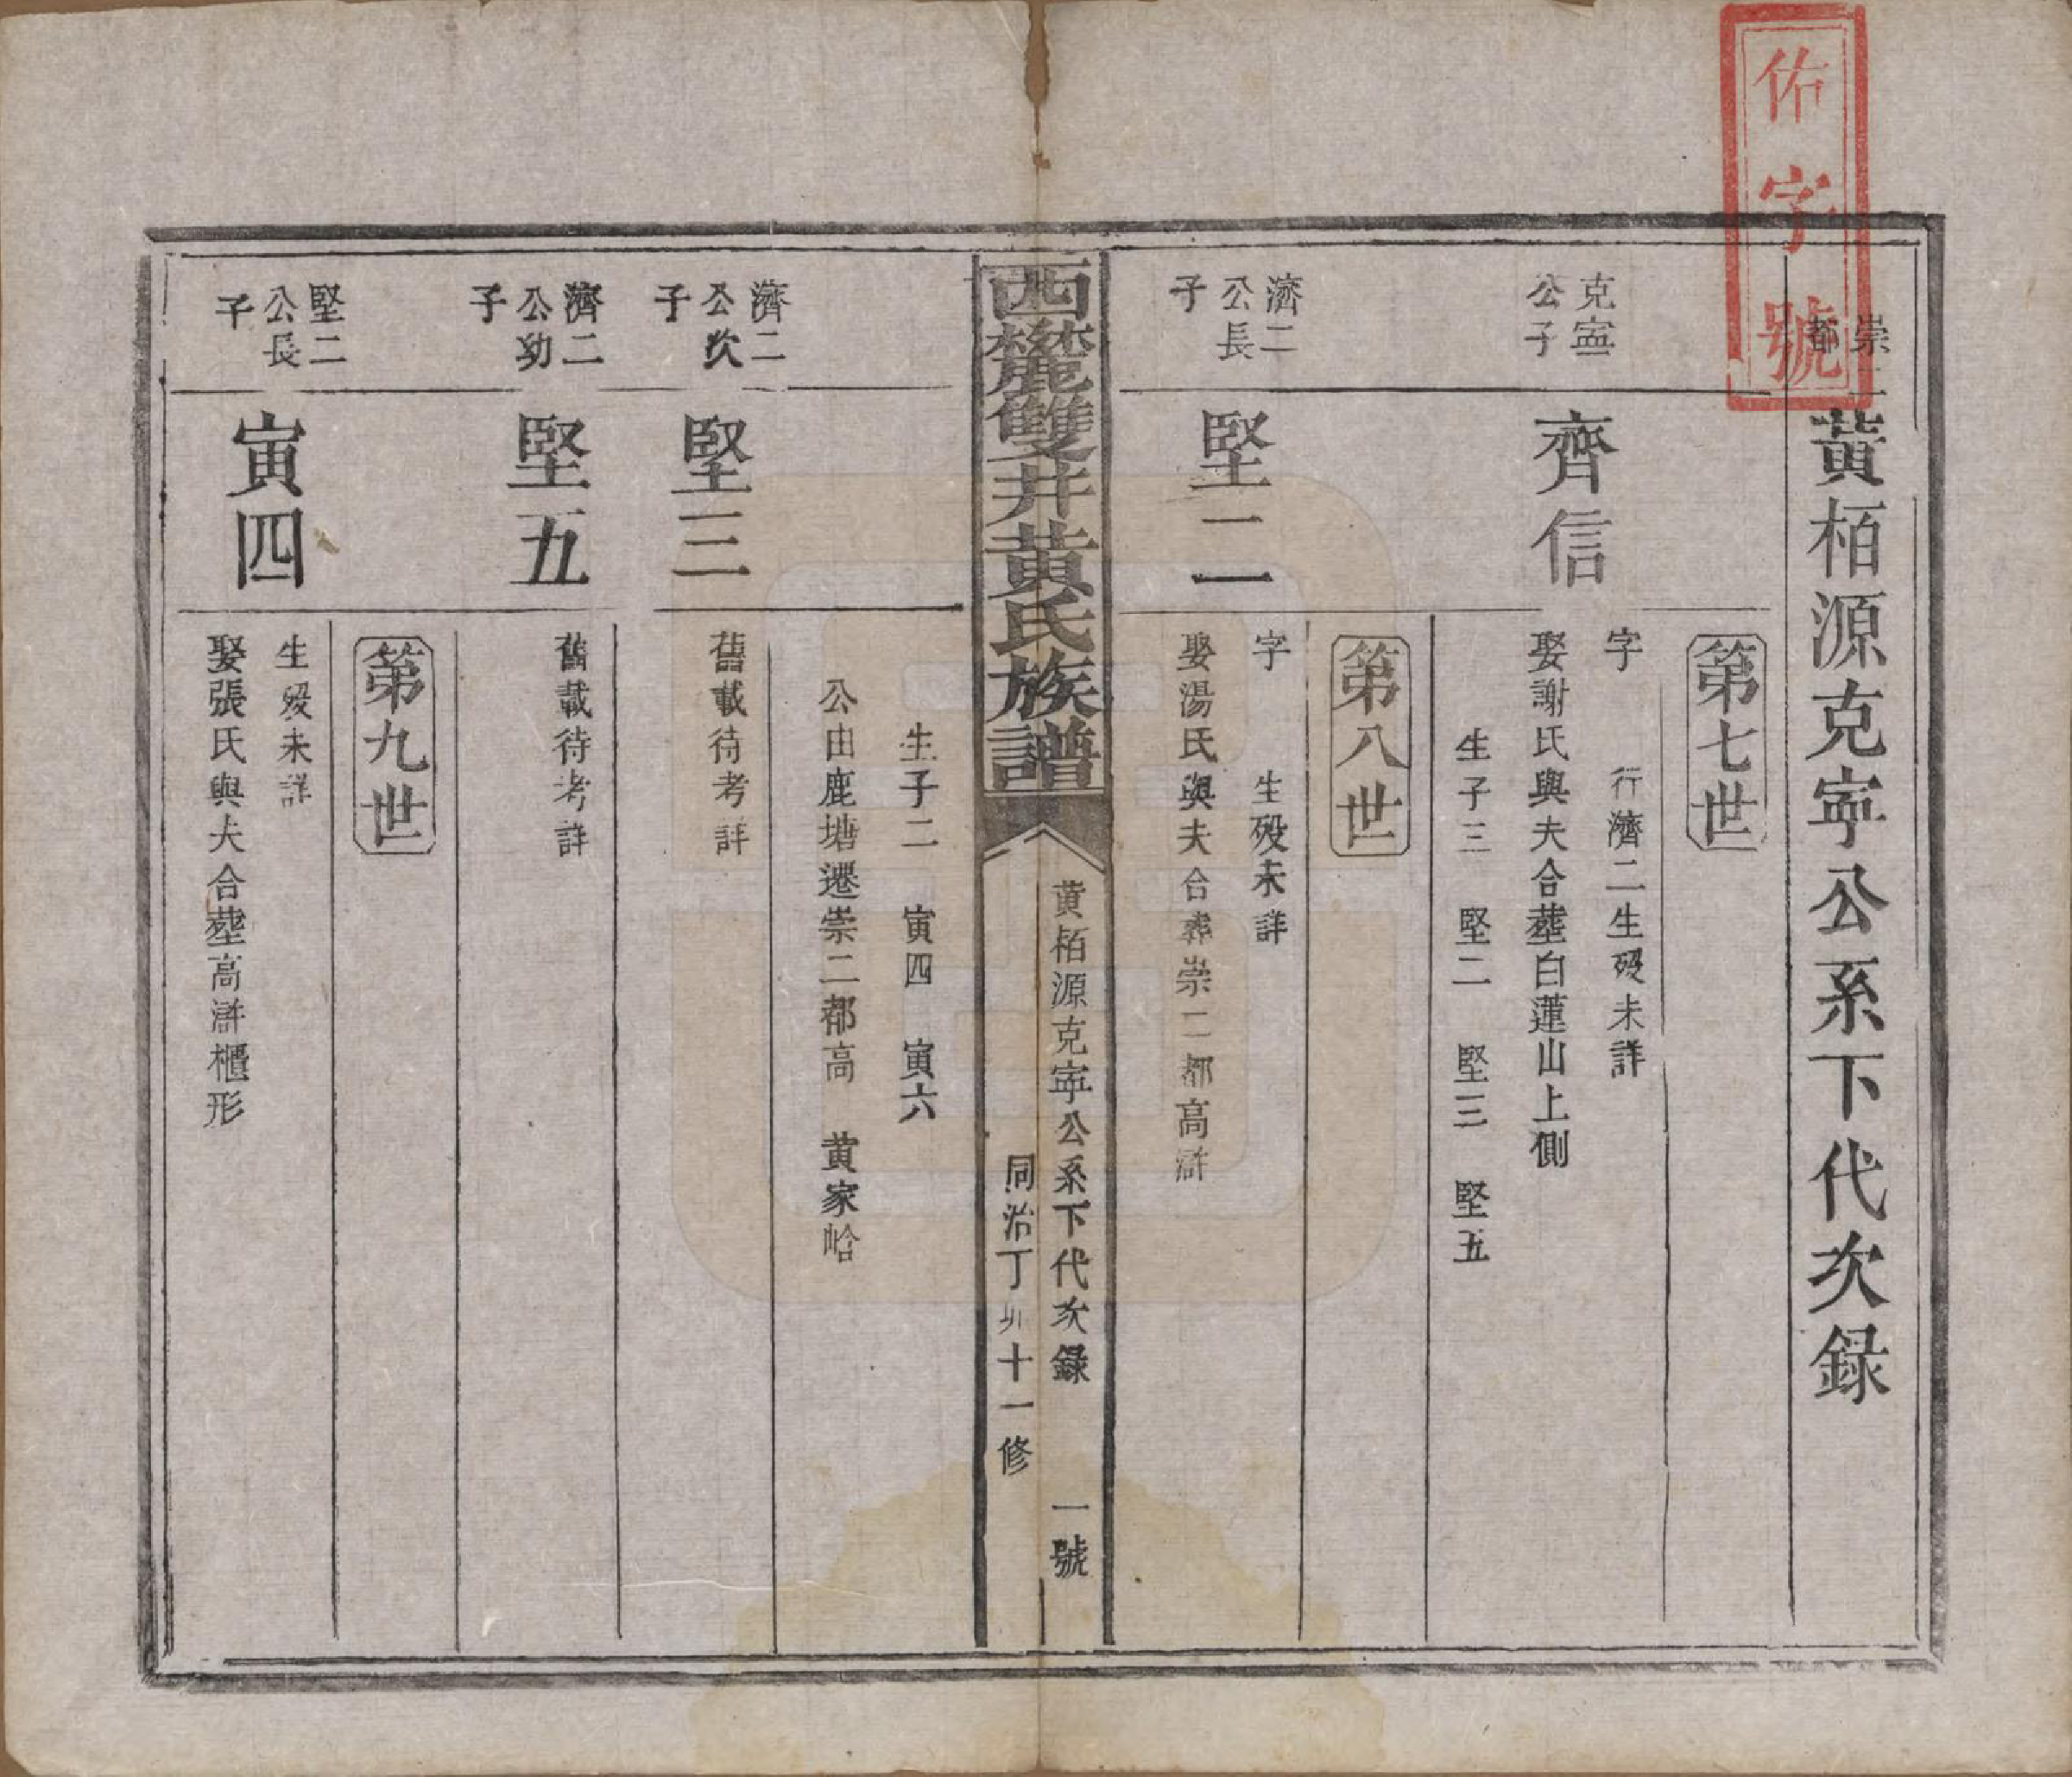 佑字號
崇二都
黃栢源克寧公系下代次錄
第七世
克寧公子
齊信
字　行濟二生殁未詳
娶謝氏與夫合塟白蓮山上側
生子三　堅二　堅三　堅五
第八世
濟二公長子
堅二
字　生殁未詳
娶湯氏與夫合葬崇二都高滸
西麓雙井黃氏族譜
黄栢源克寧公系下代次錄　一號
同治丁卯十一修
生子二　寅四　寅六
公由鹿塘遷崇二都高　黄家峆
濟二公次子
堅三
舊載待考詳
濟二公幼子
堅五
舊載待考詳
第九世
堅二公長子
寅四
生殁未詳
娶張氏與夫合塟高滸櫃形